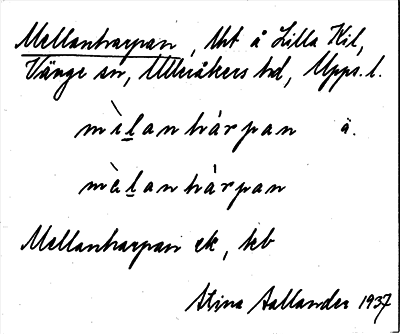 Mellanharpan, tht å Lilla Kil,
Vänge sn, Ulleråkers hd, Upps. l.
mìlanhárpan ä.
mèlanhárpan
Mellanharpan ek, kb
Stina Aallander 1937